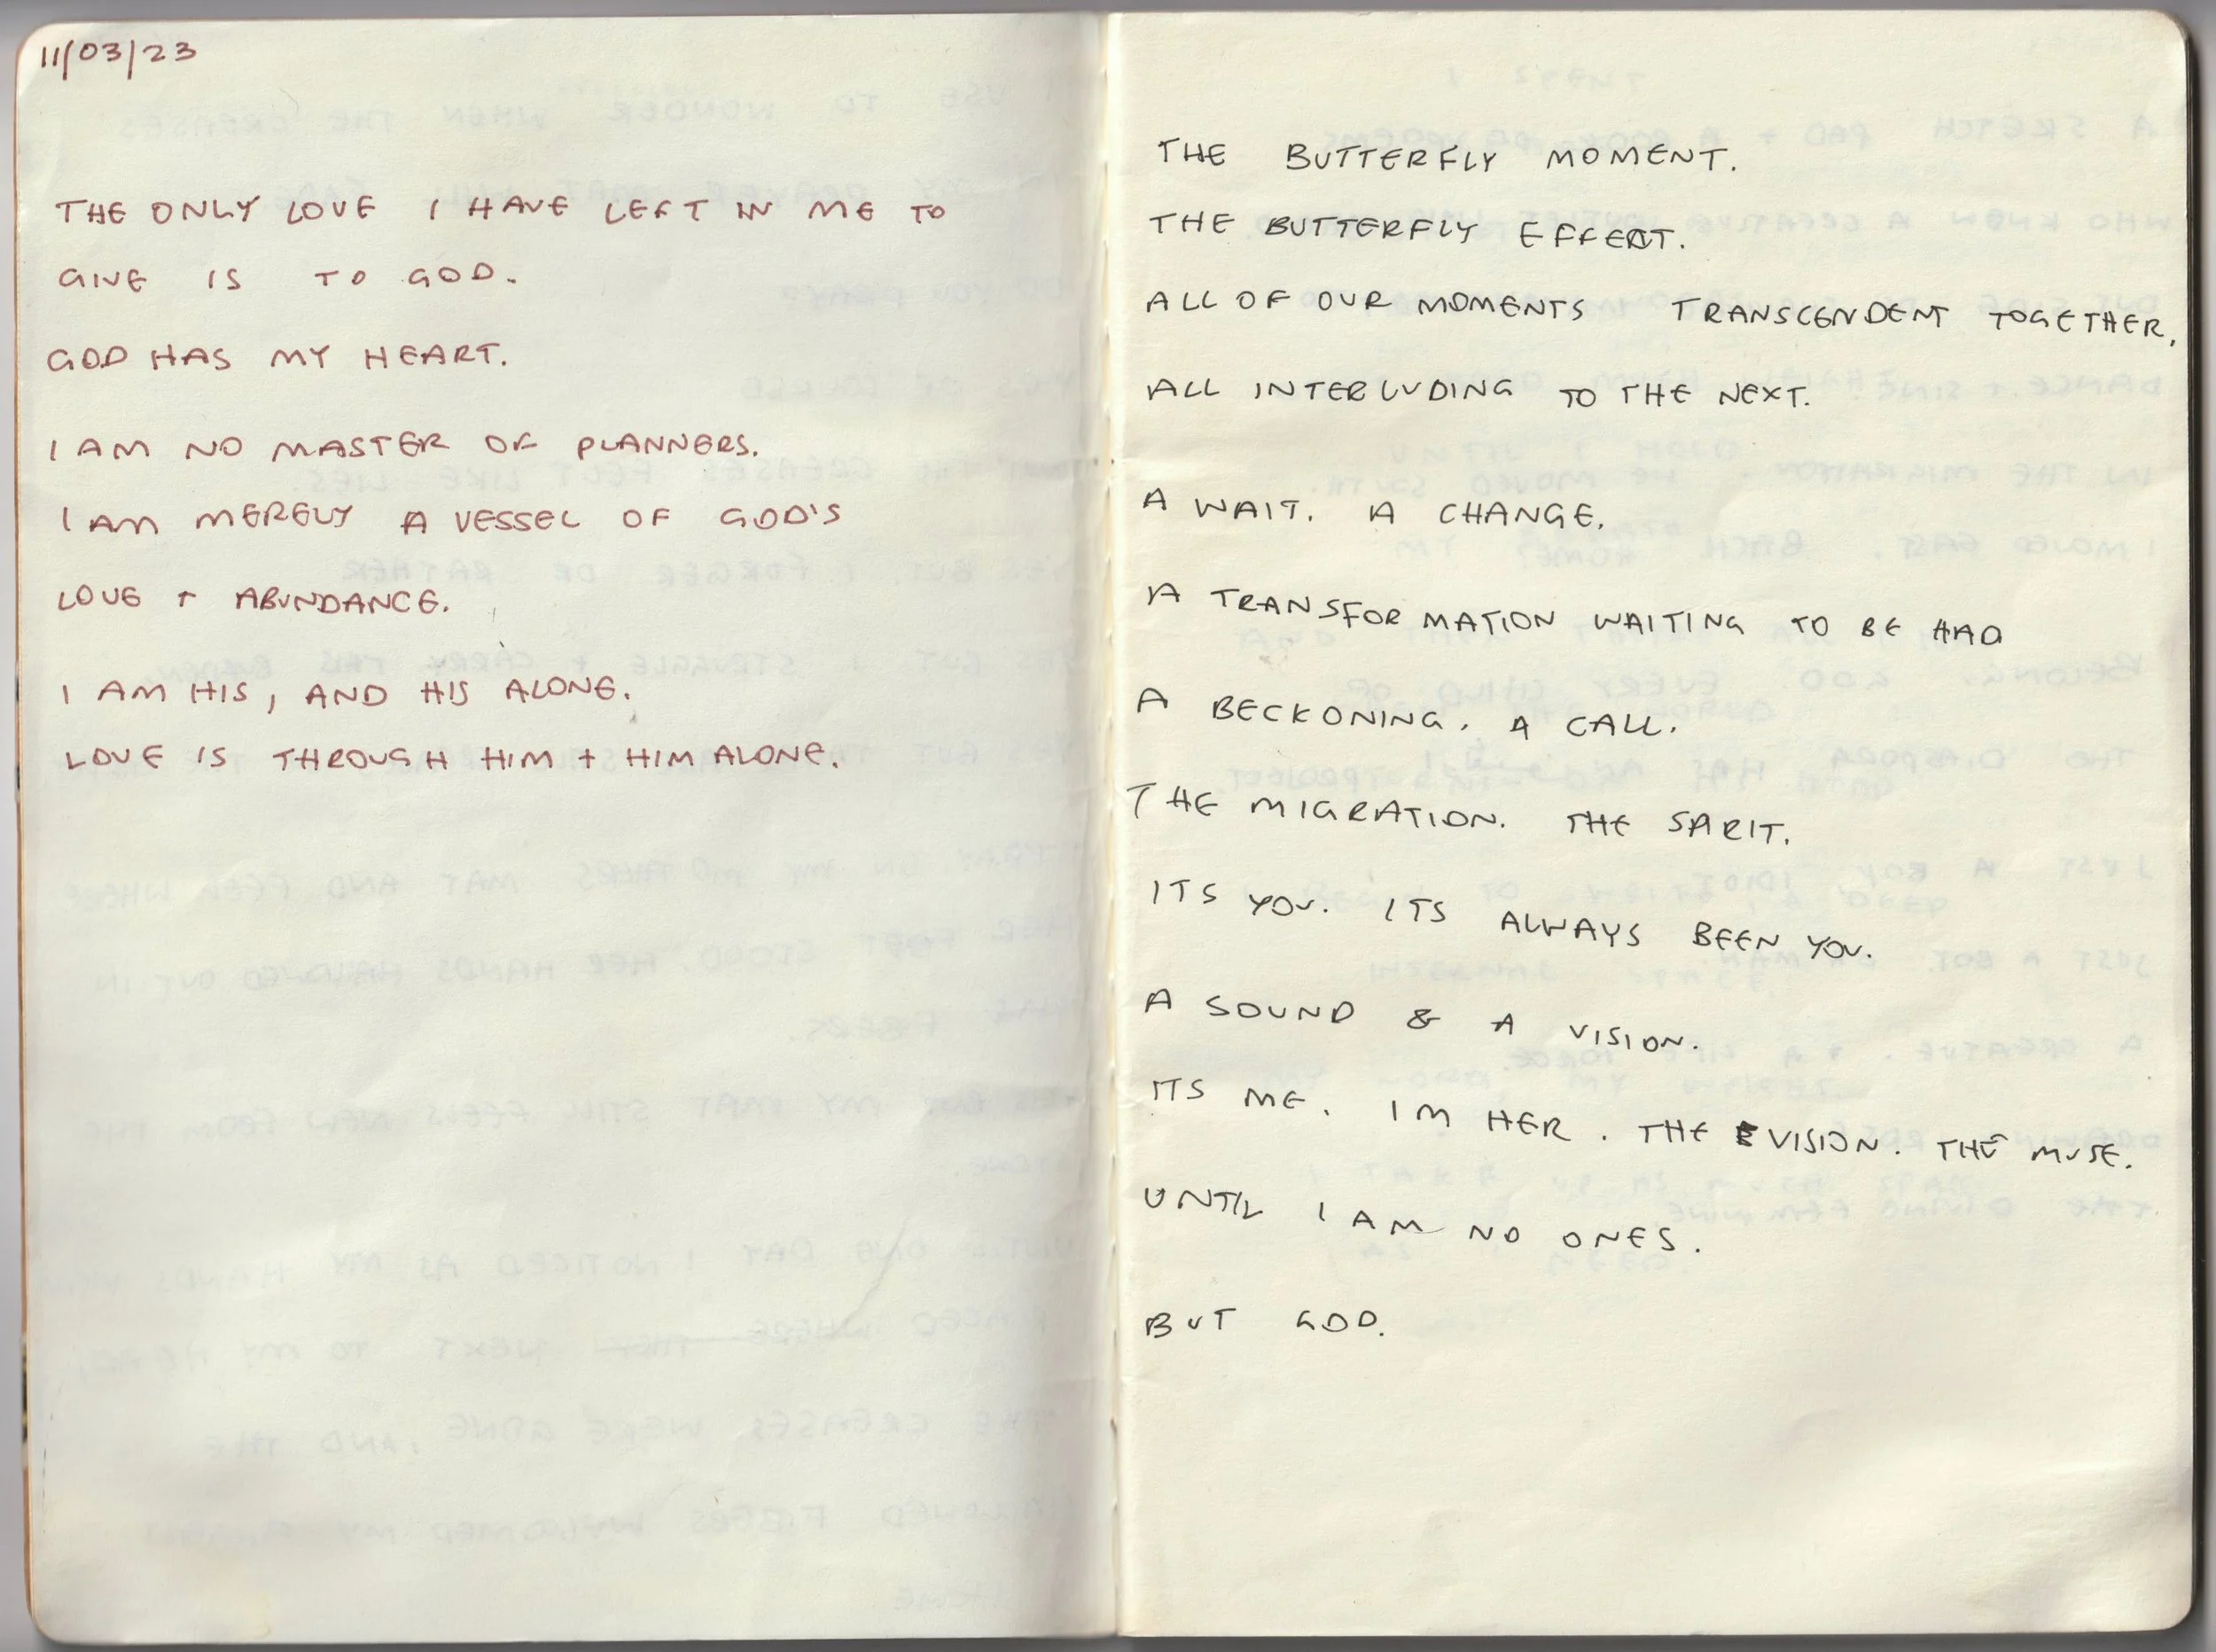 11/03/23
THE ONLY LOVE I HAVE LEFT IN ME TO
GIVE IS TO GOD.
GOD HAS MY HEART.
I AM NO MASTER OF PLANNERS.
I AM MERELY A VESSEL OF GOD'S
LOVE + ABUNDANCE.
I AM HIS, AND HIS ALONE.
LOVE IS THROUGH HIM + HIM ALONE.
THE BUTTERFLY MOMENT.
THE BUTTERFLY EFFECT.
ALL OF OUR MOMENTS TRANSCENDENT TOGETHER,
ALL INTERLUDING TO THE NEXT.
A WAIT. A CHANGE.
A TRANSFORMATION WAITING TO BE HAD
A BECKONING. A CALL.
THE MIGRATION. THE SPIRIT.
ITS YOU. ITS ALWAYS BEEN YOU.
A SOUND & A VISION.
ITS ME. IM HER. THE VISION. THE MUSE.
UNTIL I AM NO ONES.
BUT GOD.